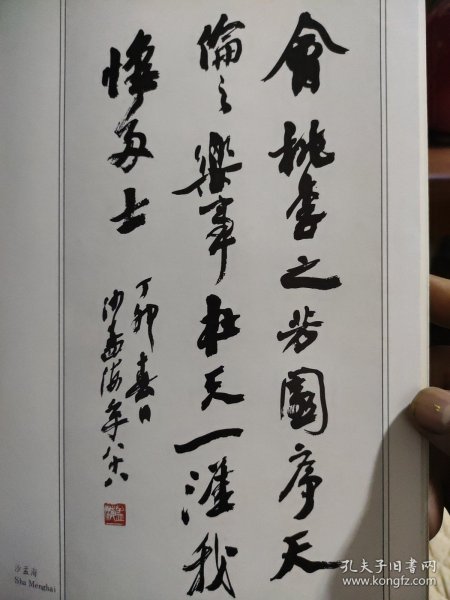 會桃李之芳園序天
倫之樂事天一滙我
多士
丁卯春日
沙孟海年八十八
沙孟海
Sha Menghai
孔夫子旧书网
www.kongfz.com